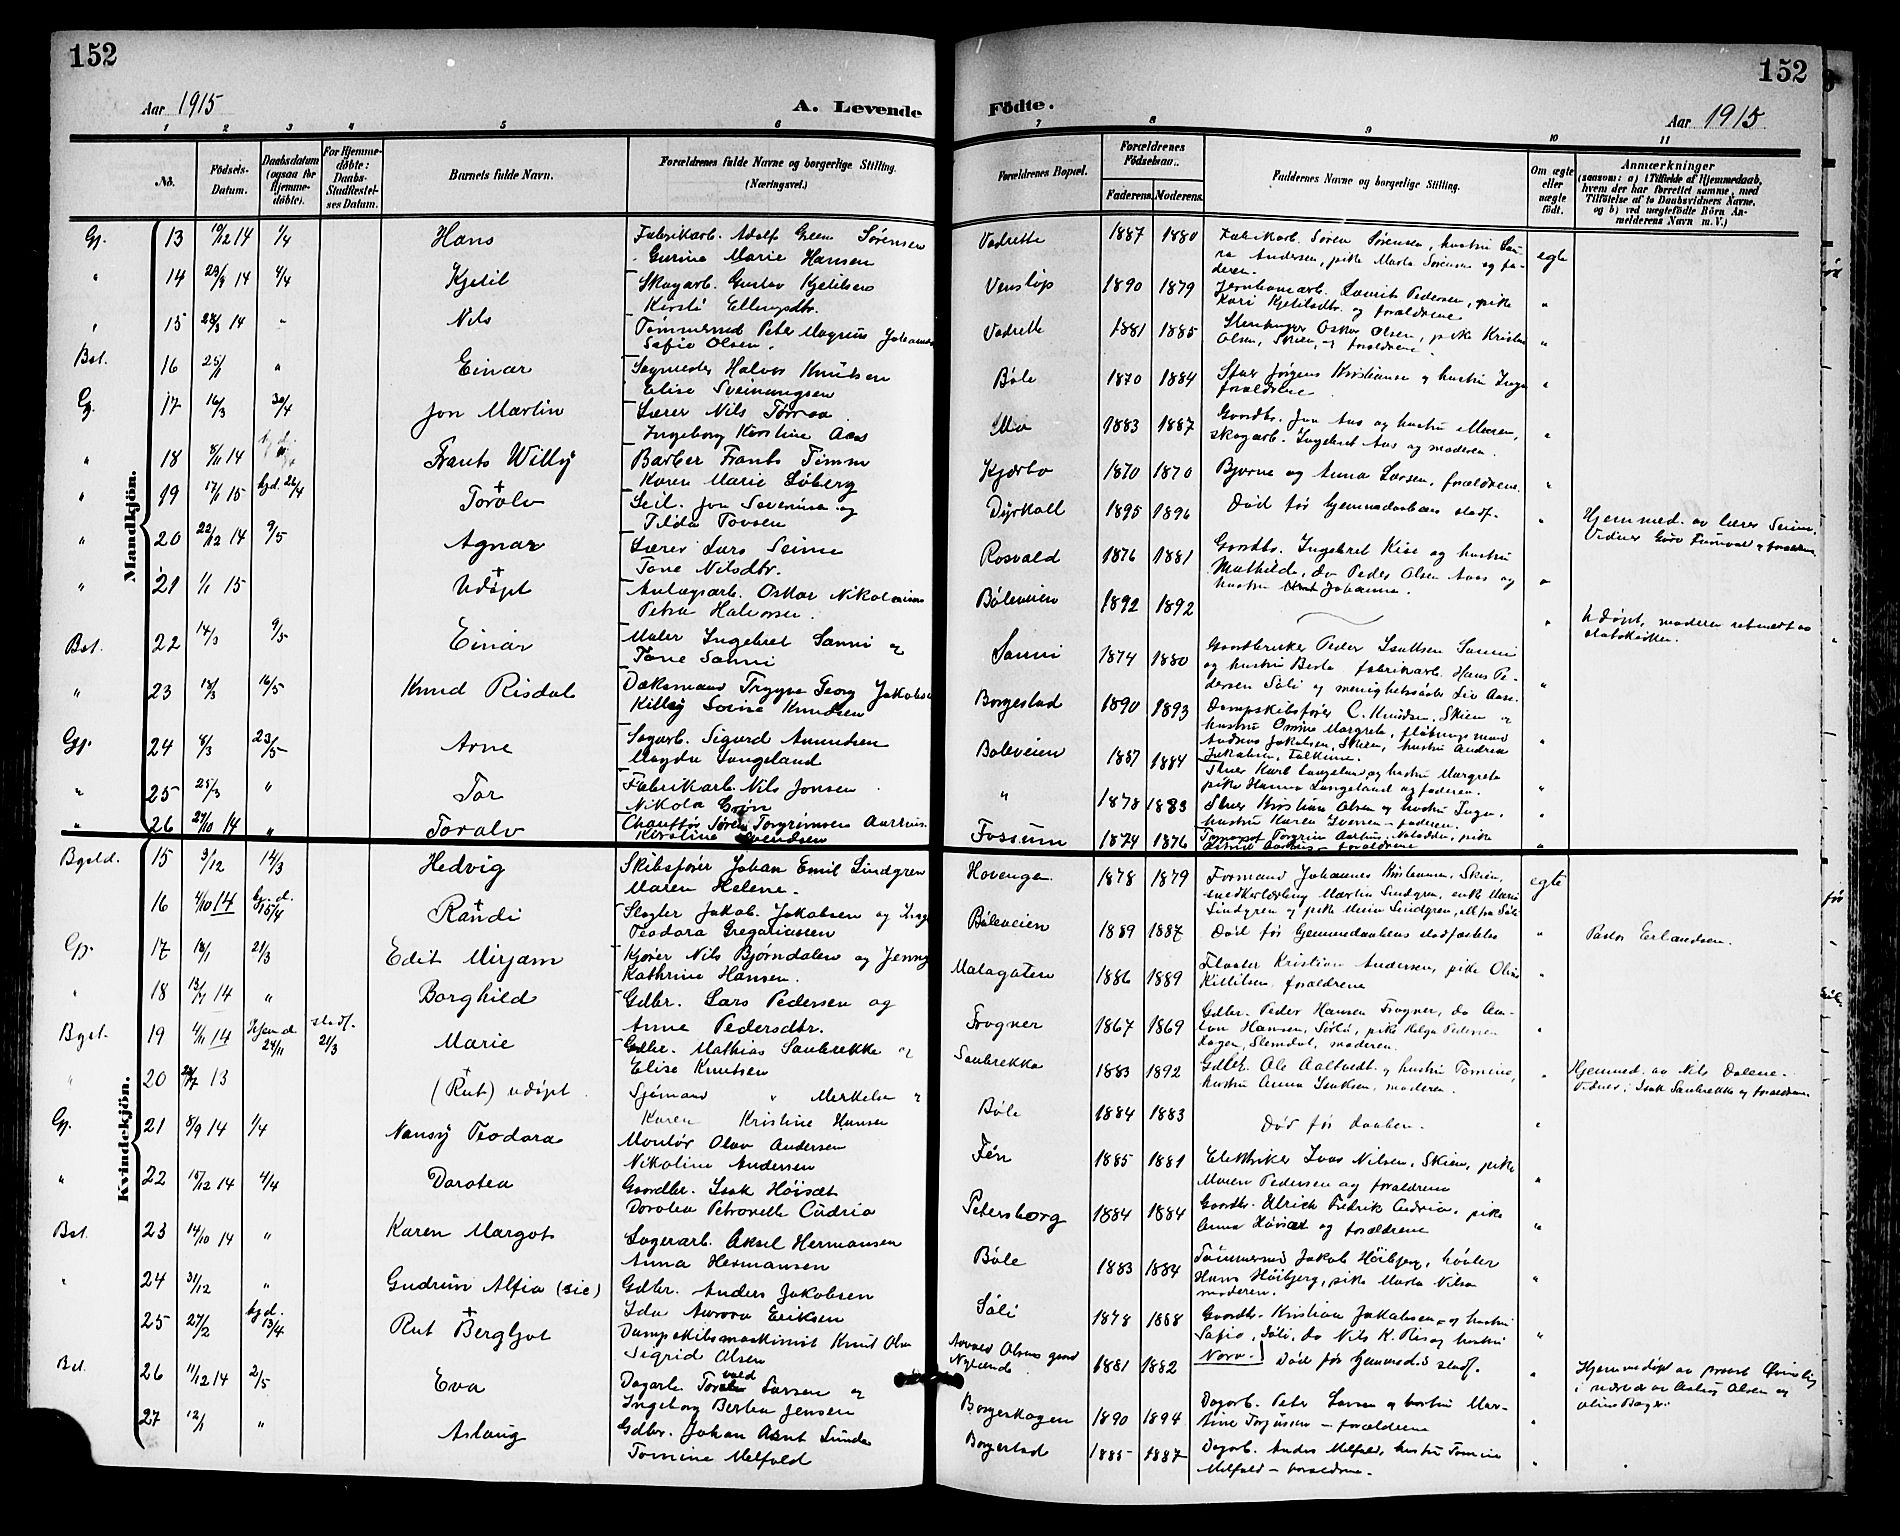 152
152
Aar 1915
A. Levende
Födte.
Aar 1915
1 2 3 4 5 6 7 8 9 10 11
No.
Födsels-
Datum.
Daabsdatum
(ogsaa for
Hjemme-
döbte).
For Hjemme-
döbte:
Daabs-
Stadfæstel-
ses Datum.
Barnets fulde Navn.
Forældrenes fulde Navne og borgerlige Stilling.
(Næringsvei.)
Forældrenes Bopæl.
Forældrenes
Födselsaar.
Faderens. Moderens.
Faddernes Navne og borgerlige Stilling.
Om ægte
eller
uægte
födt.
Anmærkninger
(saasom: a) i Tilfælde af Hjemmedaab,
hvem der har forrettet samme, med
Tilföielse af to Daabsvidners Navne,
og b) ved uægtefödte Börn An-
melderens Navn m. V.)
Mandkjön.
Gp. 13 10/12 14 1/4 Hans
Fabrikarb. Adolf Green Sørensen
Gurine Marie Hansen
Vadrette 1887 1880
Fabrikarb. Søren Sørensen, hustru Lau-
ra Andersen, pike Marta Sørensen og fa-
deren.
egte
" 14 4/4 Kjetil
Skogarb. Gustav Kjetilsen
Kirsti Ellingsdtr.
Vensløp 1890 1879
Jernbanearb. Laurits Pedersen, pike
Kari Kjetilsdtr. og forældrene
" 15 14 " Nils
Tømmermd Peter Magnus Johansen
Sofie Olsen.
Vadrette 1881 1885
Stenhugger Oskar Olsen, pike Kristine
Olsen, Skien, og forældrene.
Bst. 16 25/1 " Einar
Sagmester Halvor Knutsen
Elise Sveinungsen
Bøle 1870 1884
Stuer Jørgen Kristiansen og hustru Inga
forældrene
Gp. 17 16/3 30/4 Jon Martin
Lærer Nils Torraa
Ingeborg Kirstine Aas
Mo 1883 1887
Gaardbr. Jon Aas og hustru Maren,
skogarb. Ingebret Aas og moderen.
" 18 14 Frants Willy
Barber Frants Timm
Karen Marie Løberg
Kjørbo 1870 1870
Bjarne og Anna Larsen, forældrene.
" 19 17/1 15 hjd. 26/4 Toralv
Seil. Jon Severinsen og
Tilda Tovsen
Dyrkoll 1895 1896
Død før hjemmedaabens stadf.
Hjemmed. av lærer Seime.
" 20 22/12 14 9/5 Agnar
Lærer Lars Seime
Tone Nilsdtr.
Rosvald 1876 1881
Gaardbr. Ingebret Kise og hustru
Mathilde, do Peder Olsen Aas og
hustru Johanne.
" 21 1/1 15 Udøpt
Anlægsarb. Oskar Nikolaisen
Petra Halvorsen
Bøleveien 1892 1892
Udøpt, moderen utmeldt av
statskirken.
Bst. 22 14/3 9/5 Einar
Maler Ingebret Sanni og
Tone Sanni
Sanni 1874 1880
Gaardbruker Peder Isaksen Sanni
og hustru Berta fabrikarb. Hans Pe-
dersen Søli og menighetssøster Liv Aase.
" 23 18/3 16/5 Knud Risdal
Dæksmand Trygve Georg Jakobsen
Killey Sorine Knudsen
Borgestad 1890 1893
Dampskibsfører C. Knudsen, Skien og
hustru Omine Margrete, fløtningsmand
Andreas Jakobsen, Skien, hustru Andrea
Jakobsen, Falkum.
Gp. 24 8/3 23/5 Arne
Sagarb. Sigurd Amundsen
Magda Langeland
Bøleveien 1887 1884
Stuer Karl Langeland og hustru Margrete
pike Hanna Langeland og faderen.
" 25 25/3 " Tor
Fabrikarb. Nils Jonsen
Nikola Grøn
" 1878 1883
Stuer Kristian Olsen og hustru Inga,
hustru Karen Iversen – faderen.
" 26 27/10 14 " Toralv
Chauffør Søren Torgrimsen Aarhus.
Kirstine Svendsen
Fossum 1874 1876
Torgrim Aarhus, Notodden, pike
Aarhus – forældrene
Kvindekjön.
Bgstd. 15 3/12 14/3 Hedvig
Skibsfører Johan Emil Lindgren
Maren Helene.
Hovengen 1878 1879
Formand Johannes Kristiansen, Skien,
snedkerlærling Martin Lindgren, enke Maren
Lindgren og pike Mina Lindgren, alle fra Søli
egte
16 4/10 14 hj. d. 15/4 Randi
Slagter Jakob Jakobsen og Inga
Teodora Gregoriussen
Bøleveien 1889 1887
Død før hjemmedaabens stadfæstelse
"
Pastor Erlandsen.
Gp. 17 18/1 21/3 Edit Mirjam
Kjører Nils Bjørndalen og Jenny
Kathrine Hansen.
Malagaten 1886 1889
Fløter Kristian Andersen, pike Oline
Killilsen, forældrene
" 18 14 " Borghild
Gdbr. Lars Pedersen og
Anne Pedersdtr.
Frogner 1867 1869
Gdbr. Peder Hansen Frogner, do An-
ton Hansen, Sølø, pike Helga Pedersen
Hagen, Slemdal, moderen.
Bgst. 19 4/11 14 Hjem d. 24/11 stadf. 21/3 Marie
Gdbr. Mathias Saubrekke og
Elise Knutsen
Saubrekka 1883 1892
Gdbr. Ole Aaltvedt og hustru Tomine,
hustru Anna Isaksen, moderen.
Hjemmed. av Nils Dalene.
Vidner: Isak Saubrekke og forældrene
" 20 13 (Rut) udøpt
Sjømand " Merkelsen og
Karen Kristine Hansen
Bøle 1884 1883
Død før daaben.
Gp. 21 8/9 14 1/4 Nansy Teodora
Montør Olav Andersen
Nikoline Andersen
Fen 1885 1881
Elektriker Lars Nilsen, Skien, pike
Maren Pedersen og forældrene
" 22 15/12 14 4/4 Dorotea
Gaardbr. Isak Høisæt
Dorotea Petronelle Cudrio
Petersborg 1884 1884
Gaardb. Ulrich Fredrik Cudrio, pike
Anna Høisæt og forældrene
Bst. 23 14/10 14 " Karen Margot
Lagerarb. Aksel Hermansen
Anna Hermansen
Bøle 1883 1884
Tømmermd Jakob Høibjerg, høvler
Hans Høibjerg, pike Marta Nilsen
moderen.
" 24 31/12 " Gudrun Alfia (sic)
Gdbr. Anders Jakobsen
Ida Aurora Eriksen
Søli 1878 1888
Gaardb. Kristian Jakobsen og hustru
Sofie, Søli, do Nils K. Ris og hustru
Nora.
25 27/2 hjd. 13/4 Rut Bergljot
Dampskibsmaskinist Knut Olsen
Sigrid Olsen
Olsens gaard
Nylende 1881 1882
Død før hjemmed.s stadf.
Bst. 26 11/12 14 2/5 Eva
Dagarb. Torvald Larsen og
Ingeborg Bertea Jensen
Borgeskogen 1890 1894
Dagarb. Peter Larsen og hustru Mar-
tine Torjussen – forældrene
27 12/1 " Aslaug
Gdbr. Johan Arnt Lunde
Tomine Melfald
Borgestad 1885 1887
Dagarb. Anders Melfald, hustru Tomine
Melfald – forældrene.